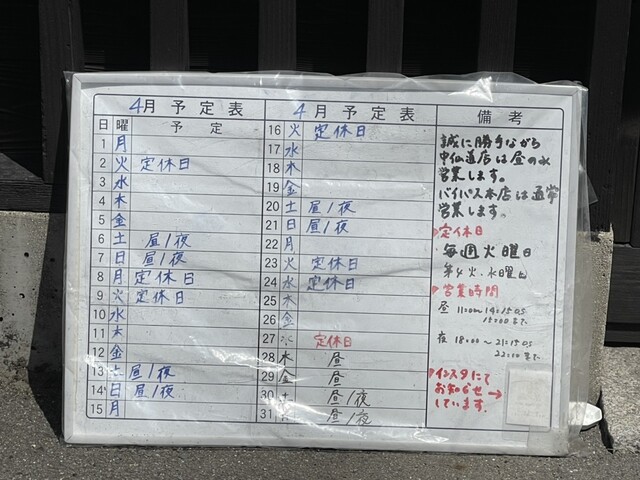 4月予定表
日 曜 予定
1 月
2 火 定休日
3 水
4 木
5 金
6 土 昼/夜
7 日 昼/夜
8 月 定休日
9 火 定休日
10 水
11 木
12 金
13 土 昼/夜
14 日 昼/夜
15 月
4月予定表
16 火 定休日
17 水
18 木
19 金
20 土 昼/夜
21 日 昼/夜
22 月
23 火 定休日
24 水 定休日
25 木
26 金
27 水 定休日
28 木 昼
29 金 昼
30 土 昼/夜
31 昼/夜
備考
誠に勝手ながら
中仙道店は昼の水
営業します。
バイパス本店は通常
営業します。
定休日
毎週火曜日
第4火、水曜日
営業時間
昼 11:00〜14:15 OS
15:00まで
夜 18:00〜21:15 OS
22:00まで
インスタにて
お知らせ→
しています。